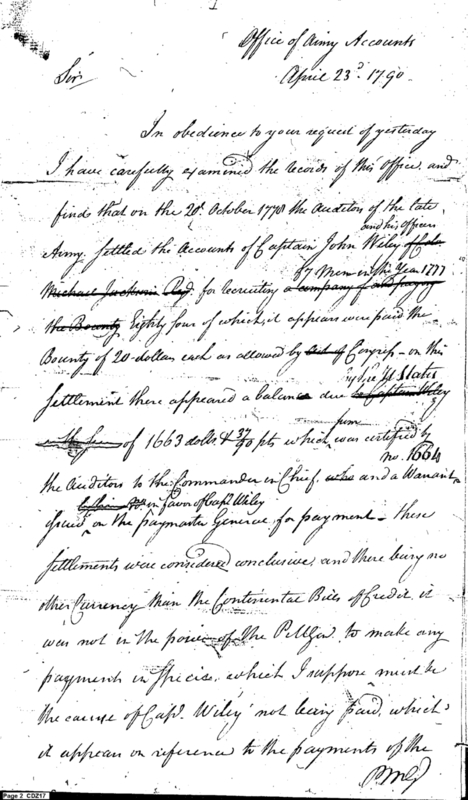 Office of Army Accounts
April 23d. 1790.
Sir
In obedience to your request of yesterday
I have carefully examined the records of this Office, and
finds that on the 20t. October 1778 the Auditors of the late
and his officers
Army settled the Accounts of Captain John Wiley of Colo
of Men in the Year 1777
Michael Jacksons Regt. for recruiting a company and paying
the Bounty Eighty four of which, it appears were paid the
Bounty of 20 dollars each as allowed by Act of Congress - on this
by the Ud. States
Settlement there appeared a balance due to Captain Wiley
him
of 1663 dolls & 37/90 pts which was certified by
no. 1664
the Auditors to the Commander in Chief. who and a Warrant
in favor of Capt. Wiley
Issued on the paymaster General for payment - these
settlements were considered conclusive, and there being no
other Currency than the Continental Bills of Credit it
was not in the power of the PMGen. to make any
payments in Specie, which I suppose must be
the cause of Capt. Wiley not being paid, which
it appears on reference to the payments of the
PMG
Page 2 CDZ17